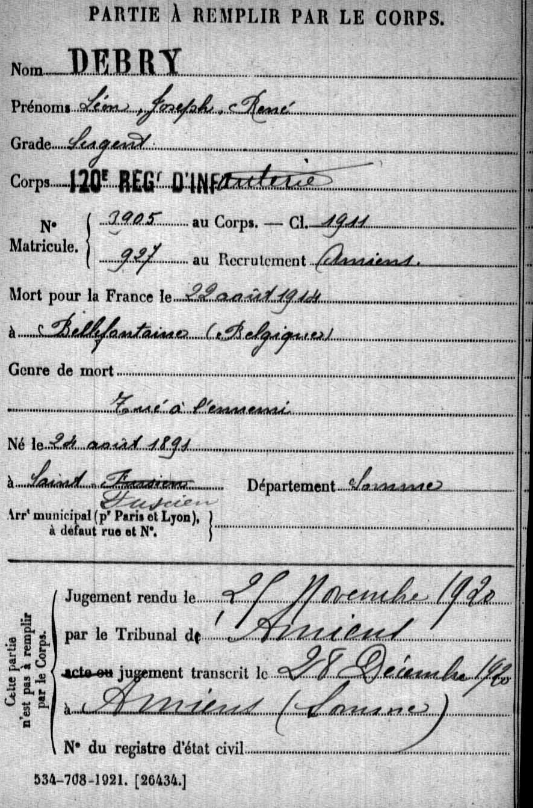 PARTIE À REMPLIR PAR LE CORPS.
Nom DEBRY
Prénoms Léon, Joseph, René
Grade Sergent
Corps 120E REGt D'INFanterie
No Matricule. 3905 au Corps. — Cl. 1911
927 au Recrutement Amiens.
Mort pour la France le 22 août 1914
à Bellefontaine (Belgique)
Genre de mort
Tué à l'ennemi
Né le 24 août 1891
à Saint Fuscien Département Somme
Fuscien
Arrt municipal (pr Paris et Lyon),
à défaut rue et No.
Cette partie
n'est pas à remplir
par le Corps.
Jugement rendu le 25 Novembre 1920
par le Tribunal de Amiens
acte ou jugement transcrit le 28 Décembre 1920
à Amiens (Somme)
No du registre d'état civil
534-708-1921. [26434.]